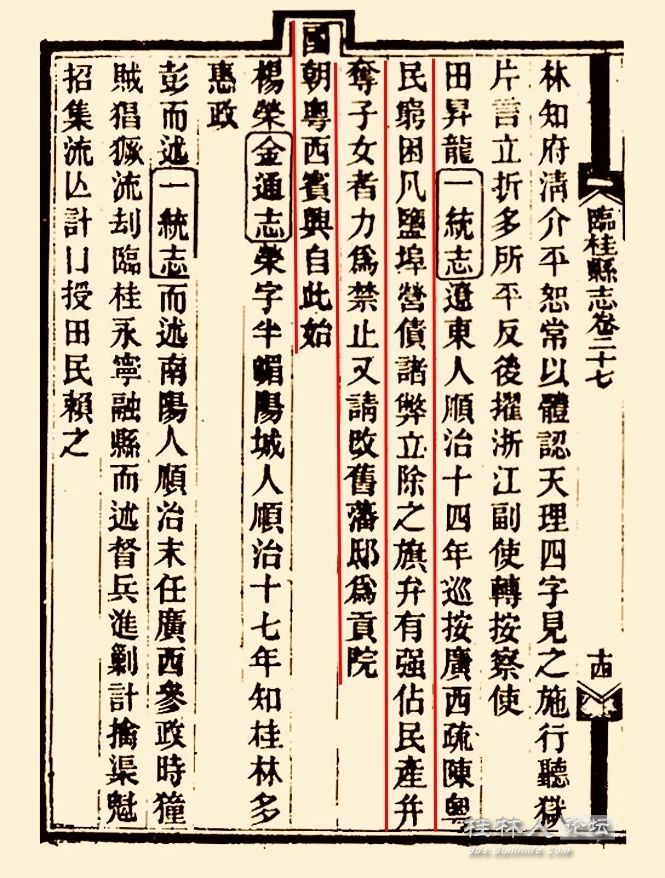 臨桂縣志卷二十七
十四
林知府清介平恕常以體認天理四字見之施行聽獄
片言立折多所平反後擢浙江副使轉按察使
田昇龍一統志遼東人順治十四年巡按廣西疏陳粵
民窮困凡鹽埠營債諸弊立除之旗弁有强佔民產幷
奪子女者力爲禁止又請改舊藩邸爲貢院
國朝粵西賓興自此始
楊榮金通志榮字半嵋陽城人順治十七年知桂林多
惠政
彭而述一統志而述南陽人順治末任廣西參政時獞
賊猖獗流刦臨桂永寧融縣而述督兵進剿計擒渠魁
招集流亾計口授田民賴之
桂林人论坛